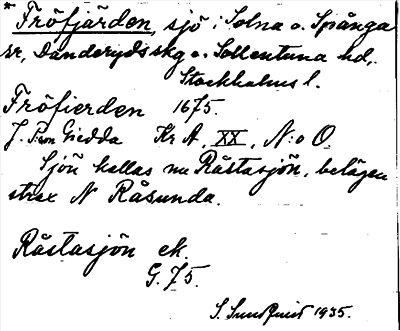 * Fröfjärden, sjö i Solna o. Spånga
sr, Danderyds skg o. Sollentuna hd,
Stockholms l.
Fröfierden 1675.
J. Pson Giedda Kr A, XX, N:o O.
Sjön kallas nu Råstasjön, belägen
strax N Råsunda.
Råstasjön ek.
G. 75.
S. Sundquist 1935.